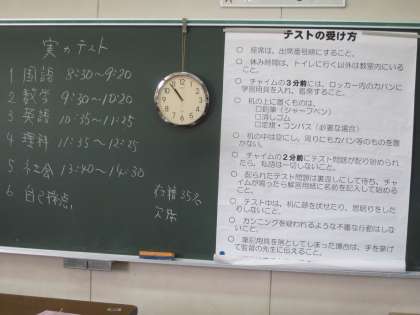 実力テスト
1 国語 8:30〜9:20
2 数学 9:30〜10:20
3 英語 10:35〜11:25
4 理科 11:35〜12:25
5 社会 13:40〜14:30
6 自己採点
在籍 35名
欠席
テストの受け方
○ 座席は、出席番号順にすること。
○ 休み時間は、トイレに行く以外は教室内にいること。
○ チャイムの3分前には、ロッカー内のカバンに学習用具を入れ、着席すること。
○ 机の上に置くものは、
□鉛筆（シャープペン）
□消しゴム
□定規・コンパス（必要な場合）
○ 机の中は空にし、周りにもカバン等のものを置かない。
○ チャイムの2分前にテスト問題が配り始められたら、私語は一切しないこと。
○ 配られたテスト問題は裏返しにして待ち、チャイムが鳴ったら解答用紙に名前を記入して始めること。
○ テスト中は、机に顔を伏せたり、居眠りをしたりしないこと。
○ カンニングを疑われるような不審な行動はしないこと。
○ 筆記用具を落としてしまった場合は、手を挙げて監督の先生に伝えること。